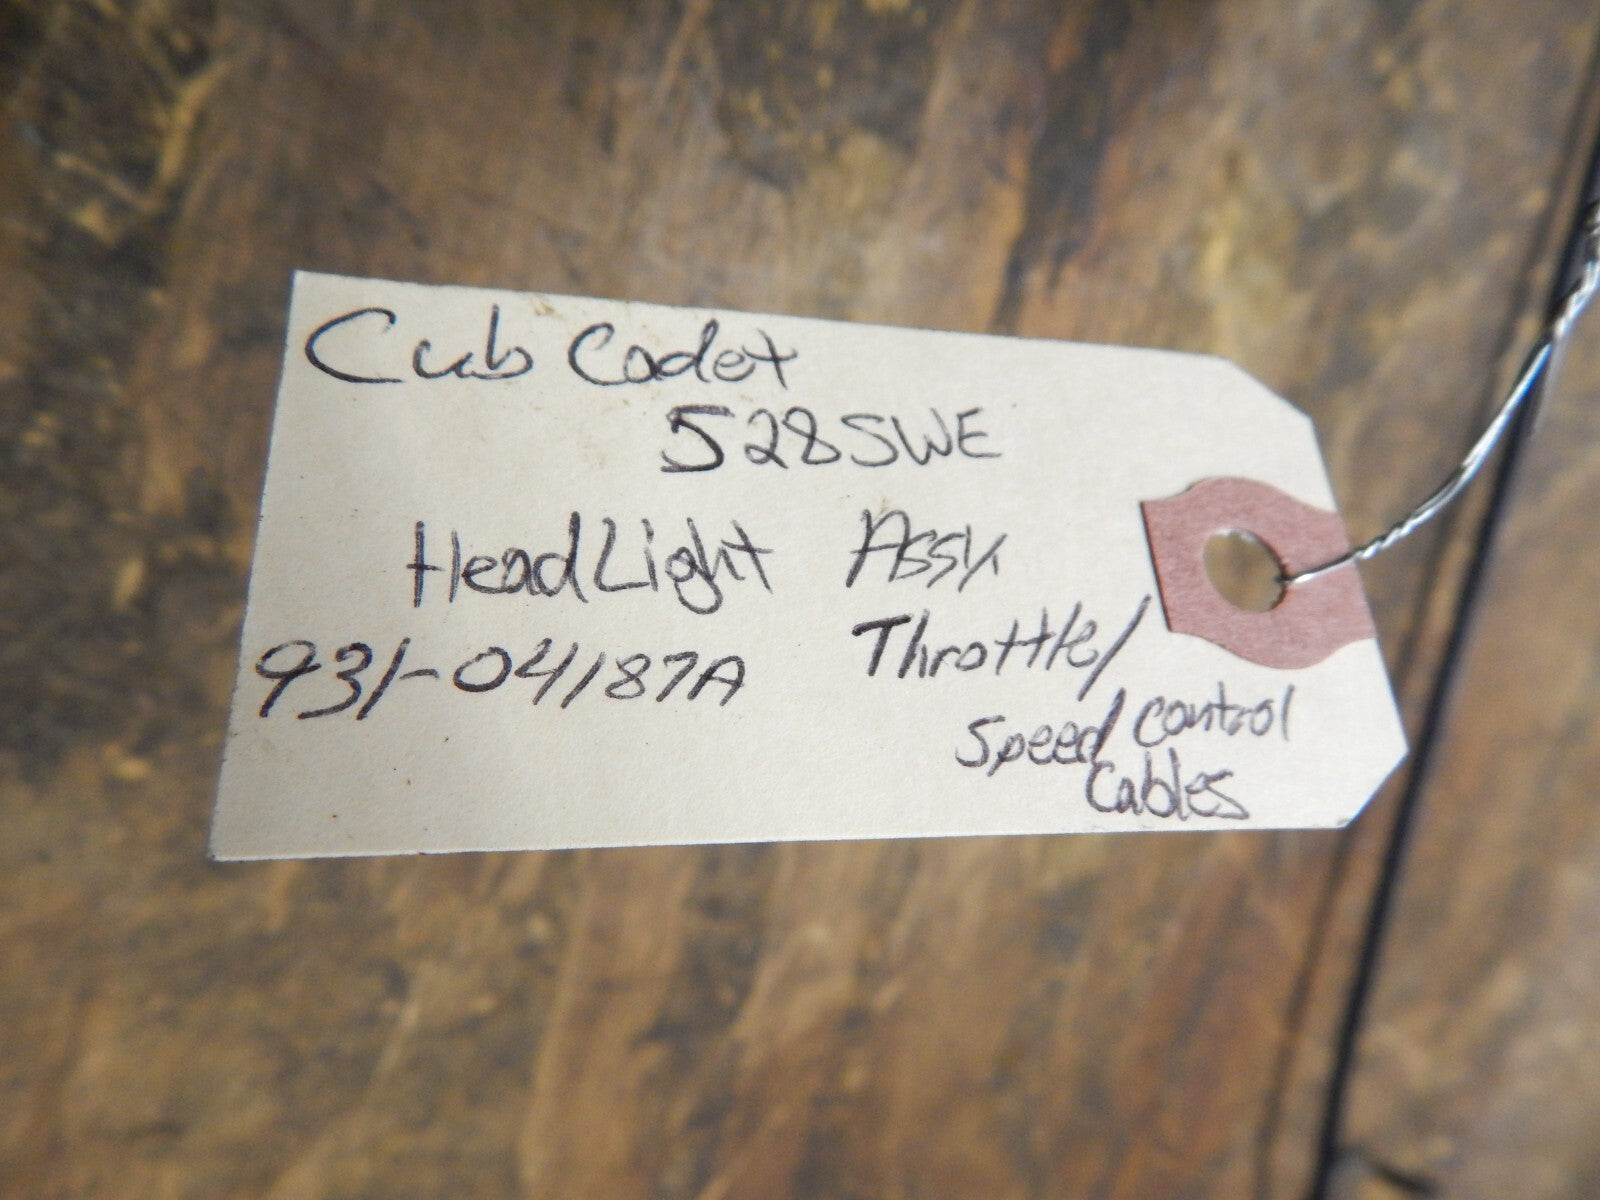 Cub Cadet
528SWE
HeadLight Assy.
931-04187A Throttle/
Speed Control
Cables